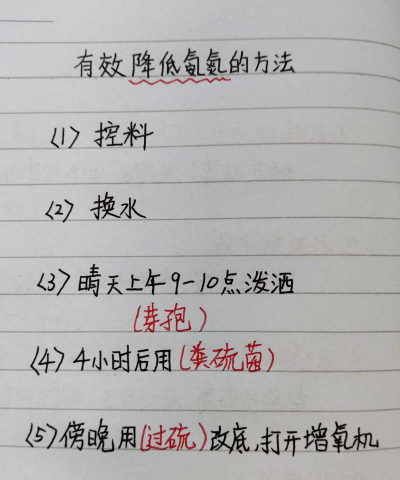 有效降低氨氮的方法
<1> 控料
<2> 换水
<3> 晴天上午9-10点泼洒
(芽孢)
<4> 4小时后用(粪硫菌)
<5> 傍晚用(过硫)改底,打开增氧机